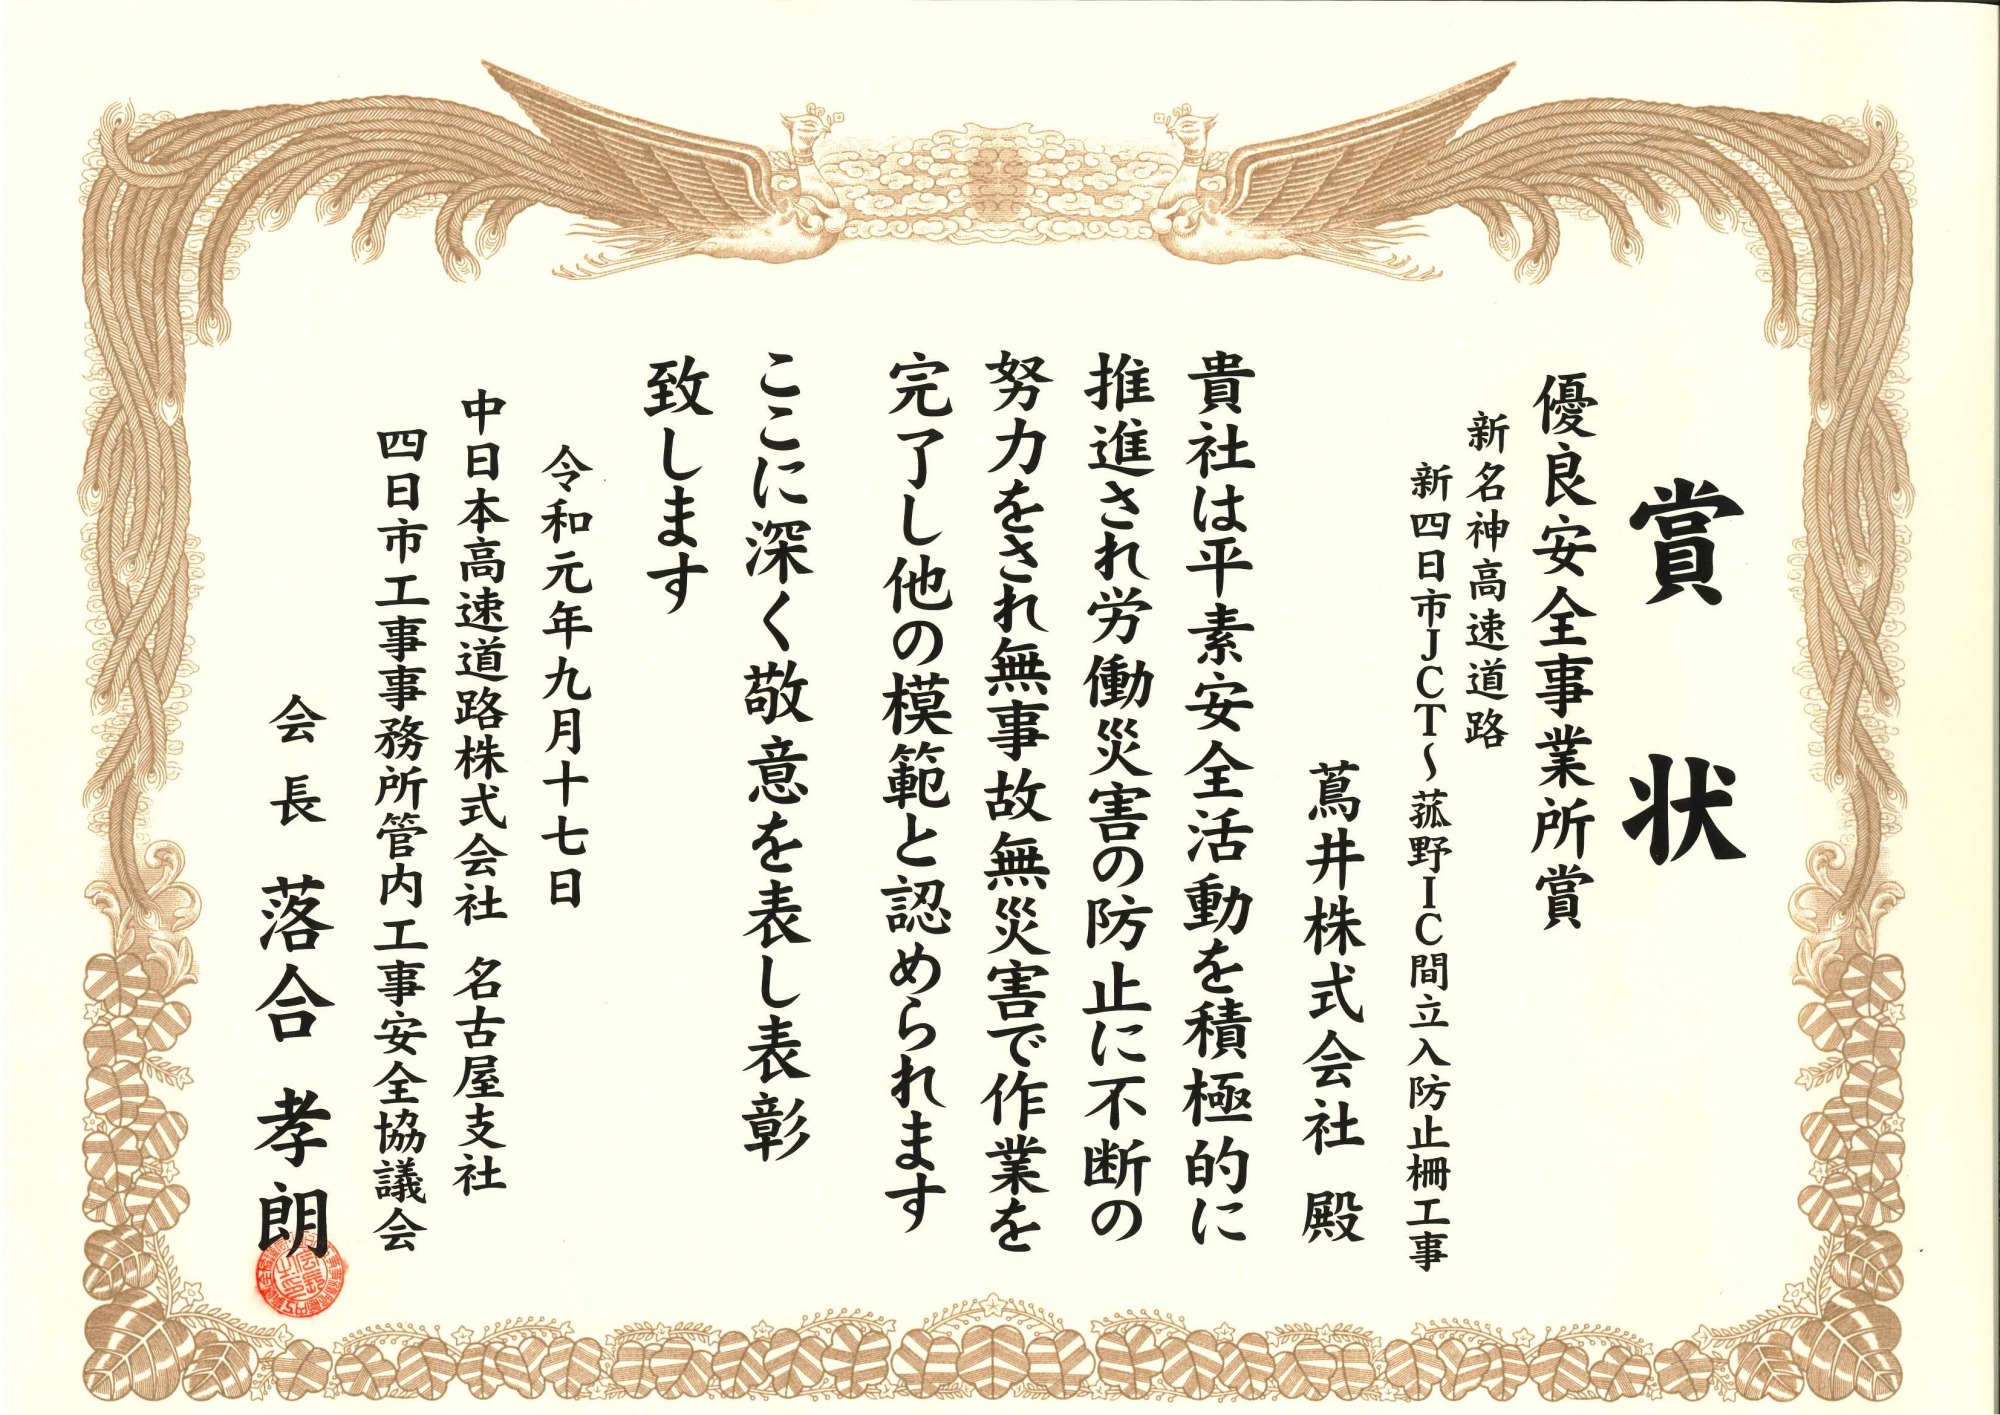 賞状
優良安全事業所賞
新名神高速道路
新四日市JCT～菰野IC間立入防止柵工事
蔦井株式会社 殿
貴社は平素安全活動を積極的に
推進され労働災害の防止に不断の
努力をされ無事故無災害で作業を
完了し他の模範と認められます
ここに深く敬意を表し表彰
致します
令和元年九月十七日
中日本高速道路株式会社 名古屋支社
四日市工事事務所管内工事安全協議会
会長 落合 孝朗